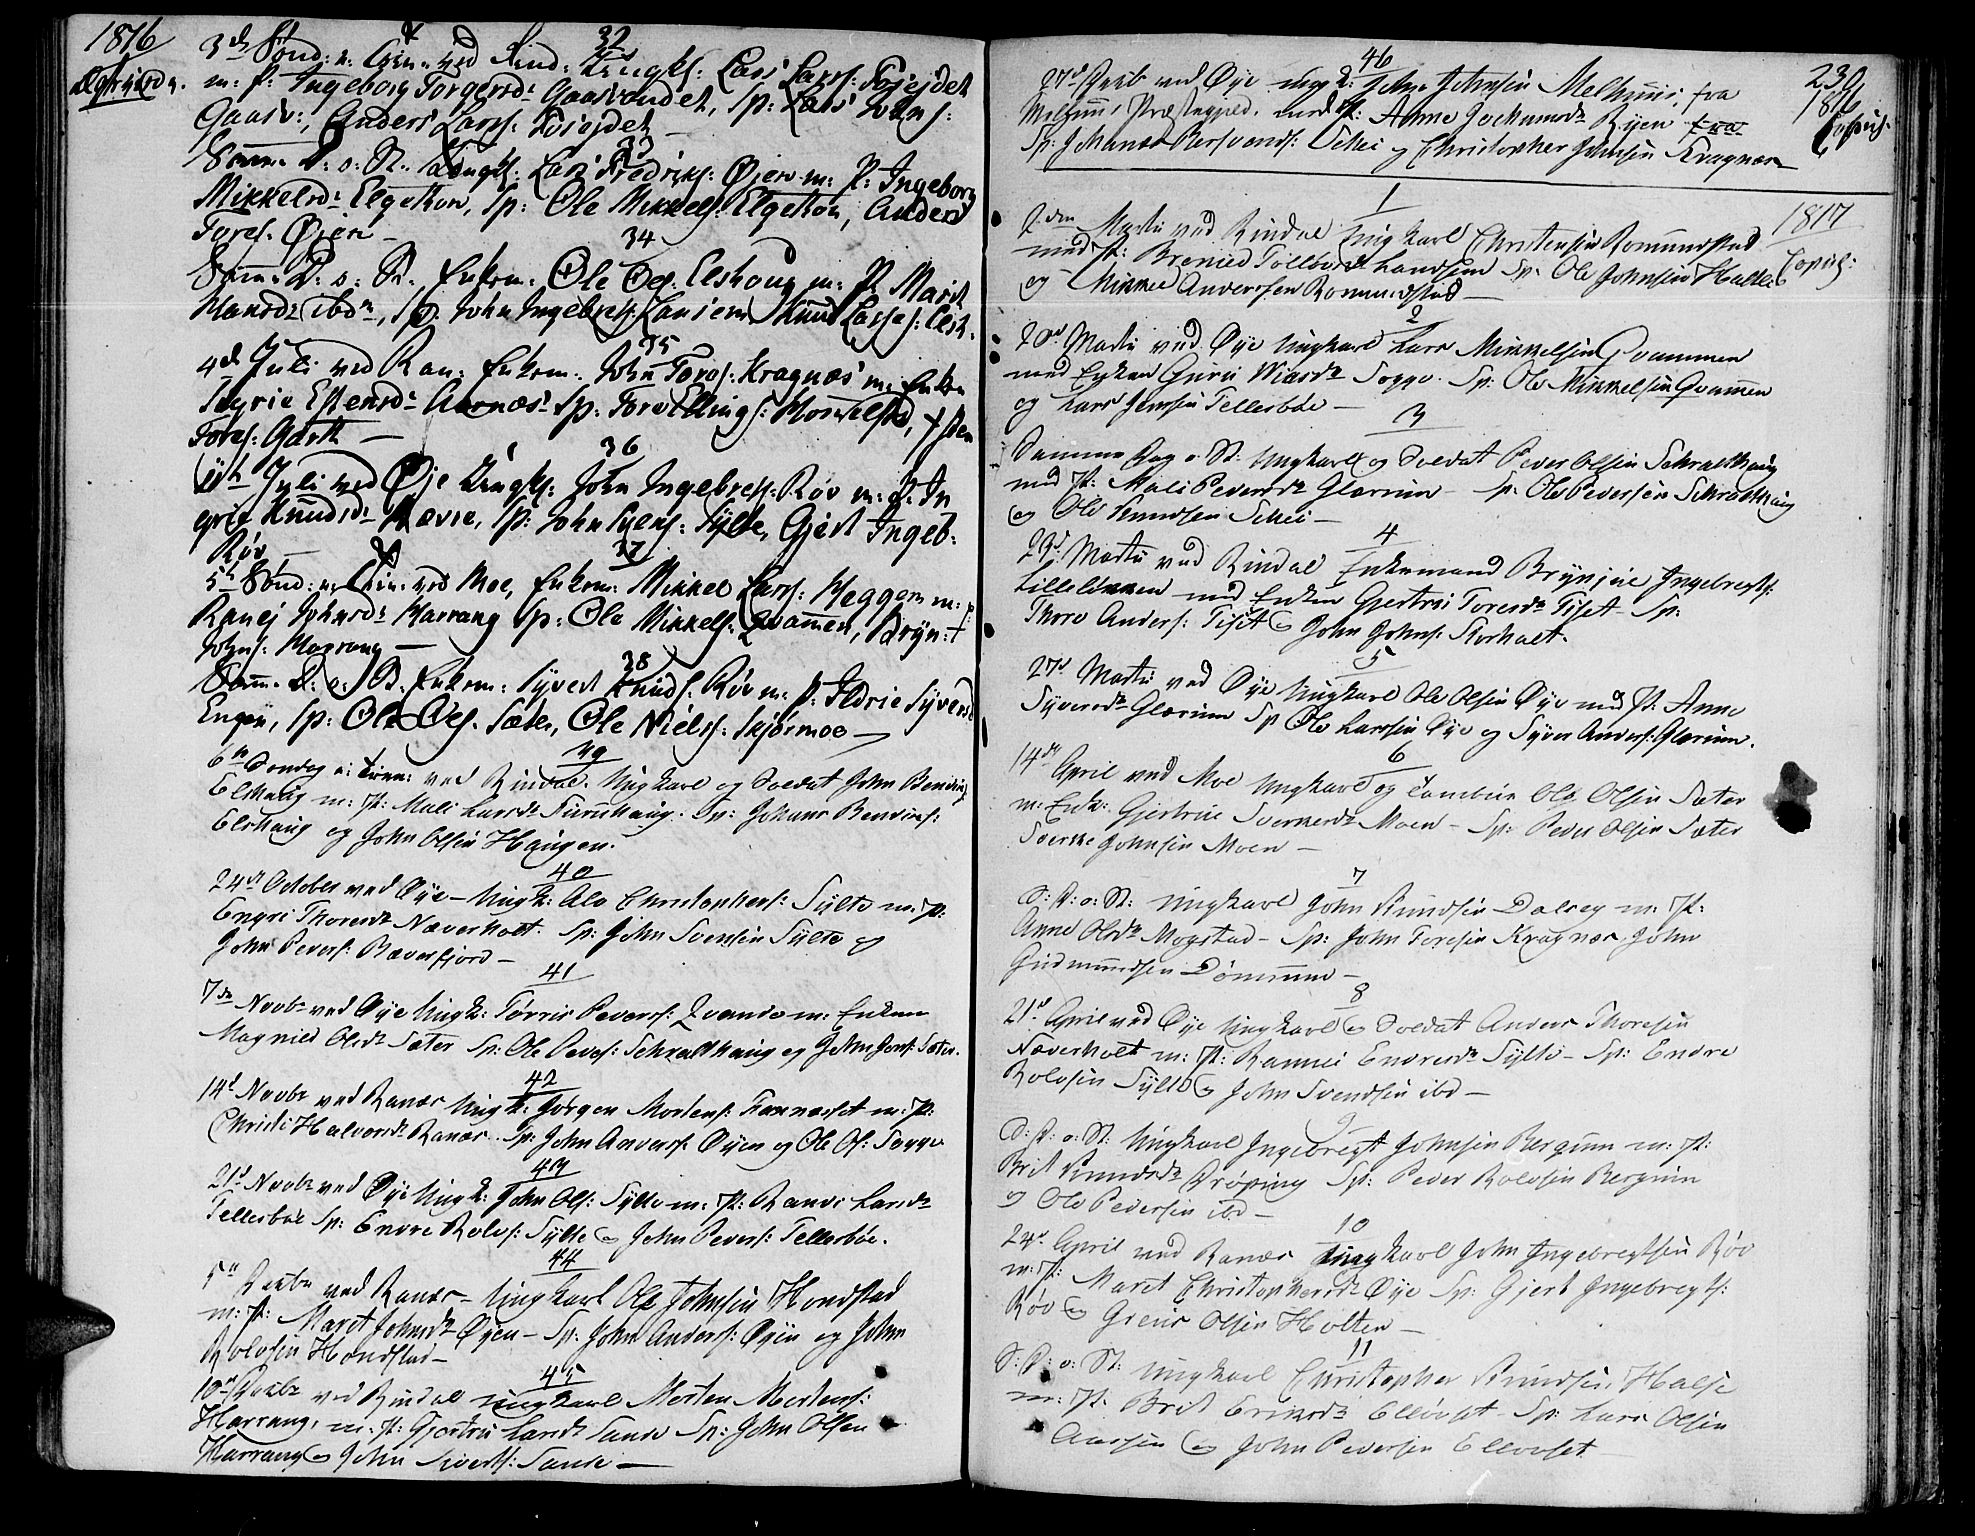 1816
32
3d Sønd: e. Trin. ved Rind: Ungk: Lars Larss: Fosejdet
m: P: Ingeborg Torgersd: Gaasvandet, Sp: Lars Johns:
Gaasv:, Anders Larss: Fosejdet
33
Samme D. o. St. Ungk: Lars Fredriks: Øjen m: P: Ingeborg
Mikkelsd: Elgetton, Sp: Ole Mikkels: Elgetton, Anders
Tores: Øjen
34
Samme D. o. St. Enkem: Ole Ols: Elshoug m: P. Marit
Hansd: ibdm, Sp. John Ingebretss: Knud Lasses: Elsh.
35
4d Juli ved Ran: Enkem: John Tores: Kragnæs m: Enken
Estensd: Aarnæs Sp: Tore Ellings:
Tores: Garth
36
Juli ved Øje Ungk: John Ingebretss: Røv m: P: In
grie Knudsd: Bævre, Sp: John Svens: Sylte, Gjert Ingeb:
Røv
37
5t Sønd: e. Trin: ved Moe, Enkem: Mikkel Larss: Heggem m: P:
Ranej Johnsd: Harrang Sp: Ole Mikkels: Qvammen, Bryn:
Johns: Harrang
38
Samm. D. o. St. Enkem: Syvert Knuds: Røv m. P: Ildrie Syversd
Engen, Sp: Ole Ols. Sæter, Ole Niels: Skjørmoe
39
6te Søndag e: Trin: ved Rindal. Ungkarl og Soldat John Bendix
Elshaug m: P: Mali Larsd: Furuhaug. Sp: Johans Bendixs:
Elshaug og John Olsen Haugen.
40
24de October ved Øye Ungk: Ole Christophers: Sylte m: P:
Engri Thoresd: Næverholt. Sp: John Svensen Sylte og
John Peders: Bæverfjord
41
7de Novbr ved Øye Ungk: Tørris Peders: Qvande m: Enken
Magnild Olsd: Sæter Sp: Ole Peders: Schralthaug og John Jons: Sæter.
42
14d Novbr ved Ranæs Ungk: Jørgen Mortens: Kannæsset m: P:
Christi Halvorsd: Ranæs. Sp: John Anders: Øyen og Ole Ols: Sogge
43
21d Novbr ved Øye Ungk: John Ols: Sylte m: P: Randi Larsd:
Tellesbøe Sp: Endre Rolvs: Sylte og John Peders: Tellesbøe.
44
5te Decbr ved Ranæs Ungkarl Ole Johnsen Hondstad
m: P: Maret Johnsd: Øyen Sp: John Anders: Øyen og John
Rolvsen Hondstad
45
Decbr ved Rindal Ungkarl Morten Mortens:
Harrang, m: P: Gjertrui Larsd: Sande Sp: John Olsen
Harrang og John Siverts: Sande
46
27d Decbr ved Øye Ungk: John Johnsen Melhuus, fra
Melhuus Præstegjeld. med P: Anne Jochumsd: Øyen fra
Sp: Johannes Schei og Christopher Johnsen Kragnæs
230
1816
Copul:
1817
Copul:
1
2den Martii ved Rindal Ungkarl Christen Romundstad
med P: Sp: Ole Johnsen Halle
og Mikkel Andersen Romundstad
2
20d Martii ved Øye Ungkarl Lars Mikkelsen Qvammen
med Enken Guru Sogge. Sp: Ole Mikkelsen Qvammen
og Lars Jonsen Tellesbøe
3
Samme Dag o. St: Ungkarl og Soldat Peder Olsen Schralthaug
med P: Mali Pedersd: Glærum Sp: Ole Pedersen Schralthaug
og Ole Knudsen Schei
4
23d Martii ved Rindal Enkemand Brynjul Ingebregts:
med Enken Gjertrui Toresd: Tiset Sp:
Thore Anders: Tiset og John Johns: Storholt.
5
27d Martii ved Øye Ungkarl Ole Olsen Øye med P: Anne
Syversd: Glærum Sp Ole Larssen Øye og Syver Anders: Glærum.
6
14de April ved Moe Ungkarl og Tambur Ole Olsen Sæter
m: Enk: Gjertrui Sverkesd: Moen Sp: Peder Olsen Sæter
Sverke Johnsen Moen
7
S: D: o: St: Ungkarl John Knudsen Dalseg m: P:
Anne Olsd: Mogstad Sp: John Toresen Kragnæs John
Gudmundsen Dønnum
8
21d April ved Øye Ungkarl og Soldat Anders Thoresen
Næverholt m: P: Rannei Endresd: Sylte Sp: Endre
Rolvsen Sylte og John Svendsen ibd
9
S: D: o: St: Ungkarl Ingebregt Johnsen Bergum m: P:
Brit Knudsd: Drøping Sp: Peder Rolvsen Bergum
og Ole Pedersen ibd
10
24d April ved Ranæs Ungkarl John Ingebregtsen Røv
m: P: Maret Christophersd: Øye Sp: Gjert Ingebregts:
Røv og Olsen Holten
11
S: D: o: St: Ungkarl Christopher Knudsen Halse
m: P: Brit Eriksd: Ellevset Sp: Lars Olsen
og John Pedersen Ellevset